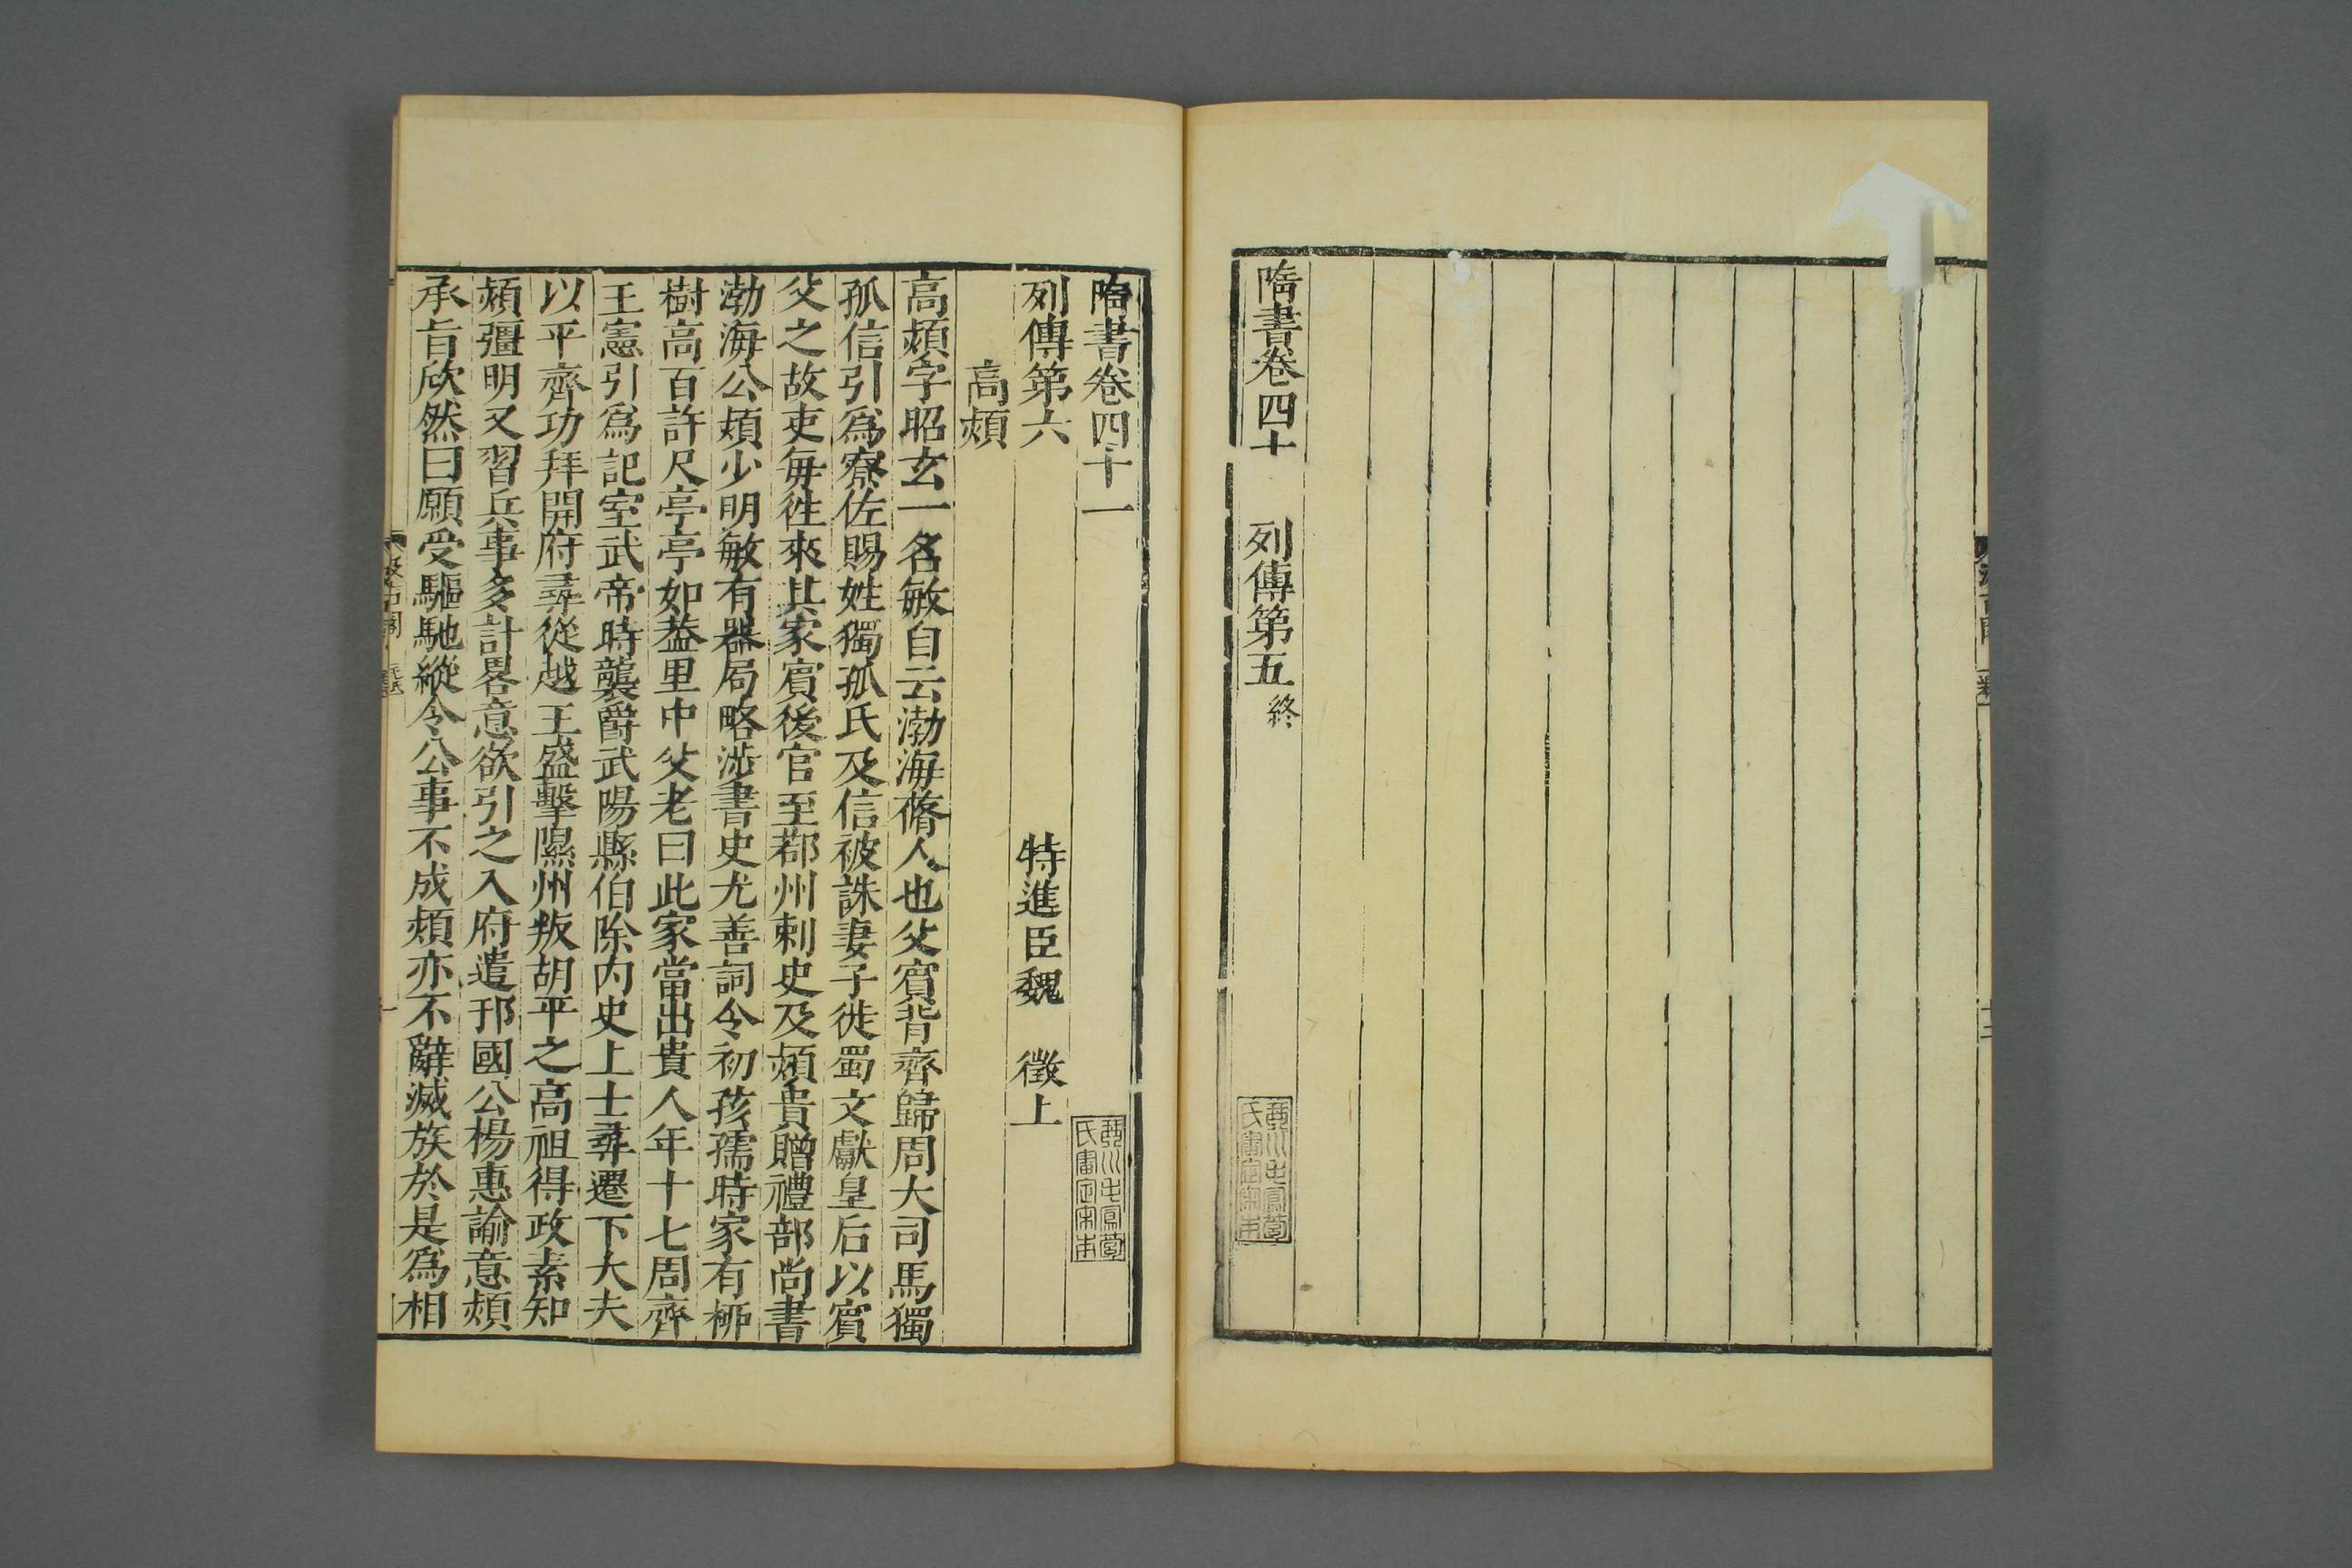 隋書卷四十　列傳第五終
隋書卷四十一
列傳第六　特進臣魏　徵上
高熲
高熲字昭玄一名敏自云渤海蓨人也父賓背齊歸周大司馬獨
孤信引爲寮佐賜姓獨孤氏及信被誅妻子徙蜀文獻皇后以賓
父之故吏每往來其家賓後官至鄀州刺史及熲貴贈禮部尚書
渤海公熲少明敏有器局略涉書史尤善詞令初孩孺時家有栁
樹高百許尺亭亭如葢里中父老曰此家當出貴人年十七周齊
王憲引爲記室武帝時襲爵武陽縣伯除内史上士尋遷下大夫
以平齊功拜開府尋從越王盛擊隰州叛胡平之高祖得政素知
熲彊明又習兵事多計畧意欲引之入府遣邗國公楊惠諭意熲
承旨欣然曰願受驅馳縱令公事不成熲亦不辭滅族於是爲相